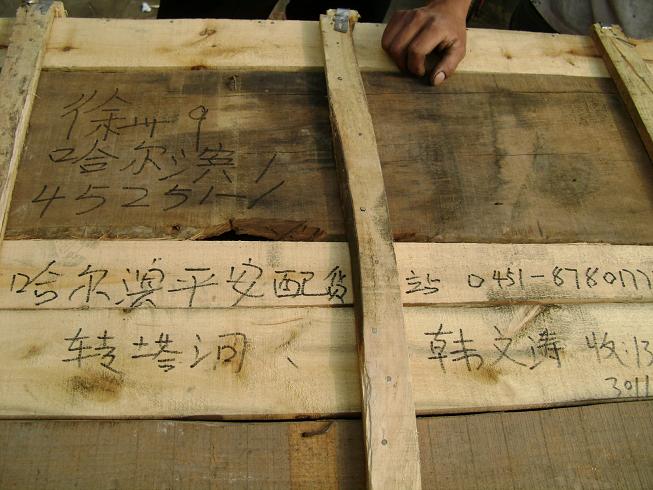 徐州 9
哈尔滨 1
45251-1
哈尔滨平安配货站 0451-8780177
转塔河、 韩文涛 收:13
3011